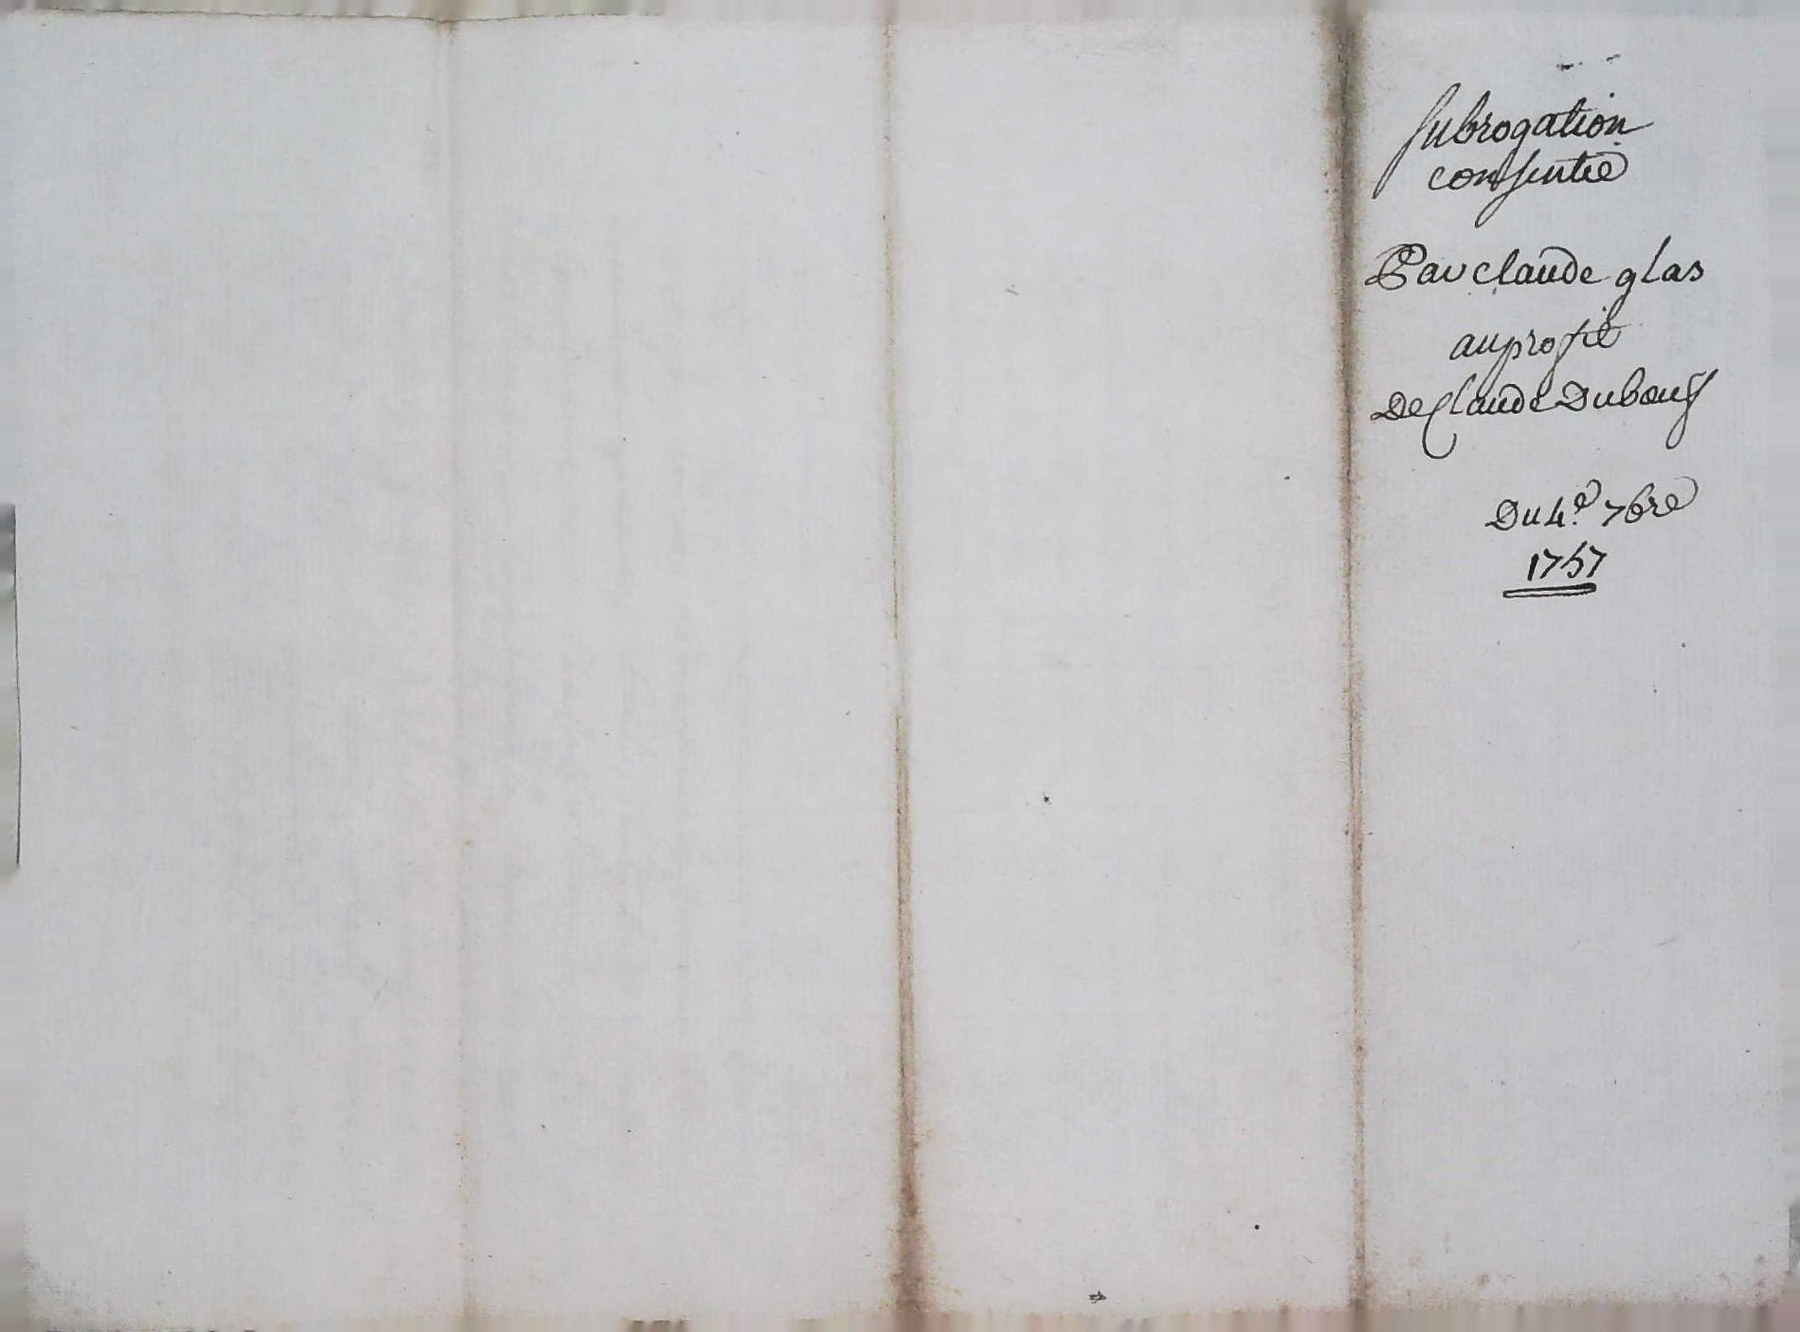 Subrogation
consentie
Par claude glas
au profit
De Claude Duboeuf
Du 4e 7bre
1757